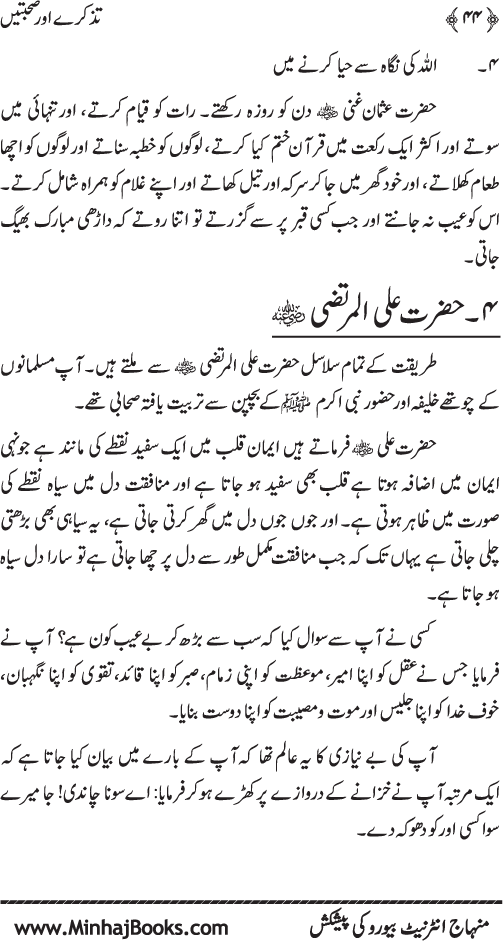 ﴿۴۴﴾ تذکرے اور صحبتیں
۴۔ اللہ کی نگاہ سے حیا کرنے میں
حضرت عثمان غنی رضی اللہ عنہ دن کو روزہ رکھتے۔ رات کو قیام کرتے، اور تنہائی میں
سوتے اور اکثر ایک رکعت میں قرآن ختم کیا کرتے، لوگوں کو خطبہ سناتے اور لوگوں کو اچھا
طعام کھلاتے، اور خود گھر میں جا کر سرکہ اور تیل کھاتے اور اپنے غلام کو ہمراہ شامل کرتے۔
اس کو عیب نہ جانتے اور جب کسی قبر پر سے گزرتے تو اتنا روتے کہ داڑھی مبارک بھیگ
جاتی۔
۴۔ حضرت علی المرتضی رضی اللہ عنہ
طریقت کے تمام سلاسل حضرت علی المرتضی رضی اللہ عنہ سے ملتے ہیں۔ آپ مسلمانوں
کے چوتھے خلیفہ اور حضور نبی اکرم ﷺ کے بچپن سے تربیت یافتہ صحابی تھے۔
حضرت علی رضی اللہ عنہ فرماتے ہیں ایمان قلب میں ایک سفید نقطے کی مانند ہے جونہی
ایمان میں اضافہ ہوتا ہے قلب بھی سفید ہو جاتا ہے اور منافقت دل میں سیاہ نقطے کی
صورت میں ظاہر ہوتی ہے۔ اور جوں جوں دل میں گھر کرتی جاتی ہے، یہ سیاہی بھی بڑھتی
چلی جاتی ہے یہاں تک کہ جب منافقت مکمل طور سے دل پر چھا جاتی ہے تو سارا دل سیاہ
ہو جاتا ہے۔
کسی نے آپ سے سوال کیا کہ سب سے بڑھ کر بے عیب کون ہے؟ آپ نے
فرمایا جس نے عقل کو اپنا امیر، موعظت کو اپنی زمام، صبر کو اپنا قائد، تقوی کو اپنا نگہبان،
خوف خدا کو اپنا جلیس اور موت و مصیبت کو اپنا دوست بنایا۔
آپ کی بے نیازی کا یہ عالم تھا کہ آپ کے بارے میں بیان کیا جاتا ہے کہ
ایک مرتبہ آپ نے خزانے کے دروازے پر کھڑے ہو کر فرمایا: اے سونا چاندی! جا میرے
سوا کسی اور کو دھوکہ دے۔
منہاج انٹرنیٹ بیورو کی پیشکش www.MinhajBooks.com